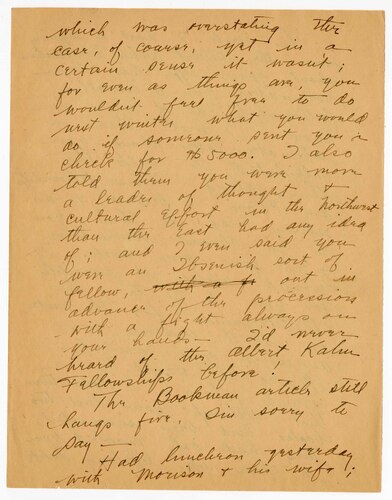 which was overstating the
case, of course, yet in a
certain sense it wasn't;
for even as things are, you
wouldn't feel free to do
next winter what you would
do if someone sent you a
check for $5000. I also
told them you were more
a leader of thought &
cultural effort in the Northwest
than the East had any idea
of; and I even said you
were an Ibsenish sort of
fellow, with a fi out in
advance of the procession
with a fight always on
your hands— I'd never
heard of the Albert Kahn
Fellowships before!
The Bookman article still
hangs fire, I'm sorry to
say—
Had luncheon yesterday
with Morison & his wife;